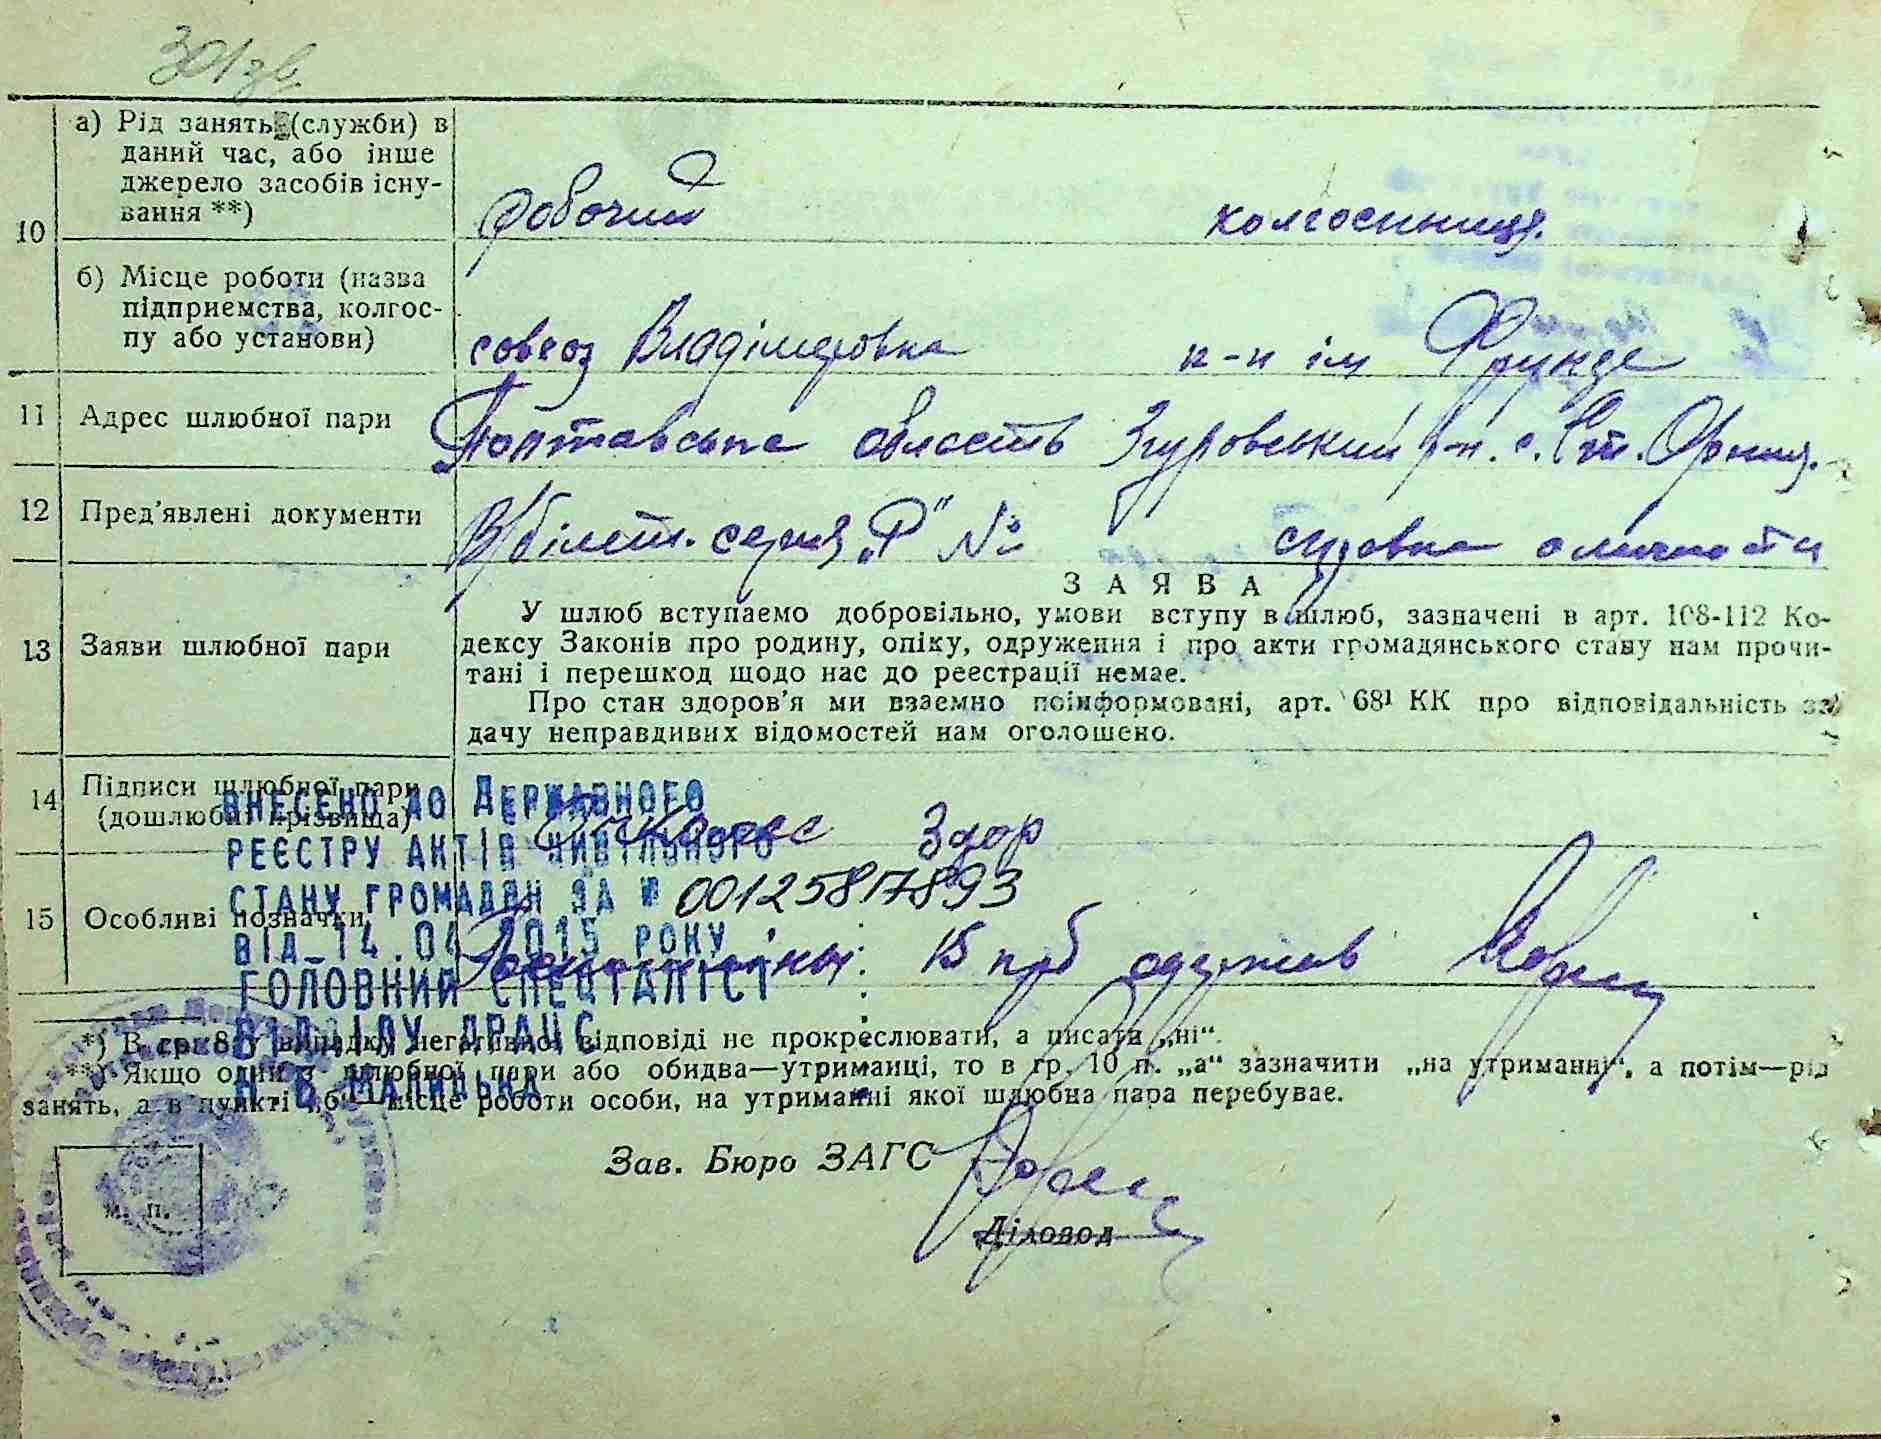 301зв
10
а) Рід занять (служби) в
даний час, або інше
джерело засобів існу-
вання **)
робочий колгоспниця.
б) Місце роботи (назва
підприемства, колгос-
пу або установи)
совхоз Владімеровка к-п ім Фрунзе
11 Адрес шлюбної пари Полтавська область Згуровський р-н. с. Ст. Оржиця.
12 Пред'явлені документи В/білет. серия „Р" № справка о личности
13 Заяви шлюбної пари
ЗАЯВА
У шлюб вступаємо добровільно, умови вступу в шлюб, зазначені в арт. 108-112 Ко-
дексу Законів про родину, опіку, одруження і про акти громадянського стану нам прочи-
тані і перешкод щодо нас до реестрації немае.
Про стан здоров'я ми взаемно поінформовані, арт. 68¹ КК про відповідальність за
дачу неправдивих відомостей нам оголошено.
14 Підписи шлюбної пари
(дошлюбні прізвища)
Здор
15 Особливі позначки
15 крб одержав
ВНЕСЕНО ДО ДЕРЖАВНОГО
РЕЄСТРУ АКТІВ ЦИВІЛЬНОГО
СТАНУ ГРОМАДЯН ЗА № 00125817893
ВІД 14.04.2015 РОКУ
ГОЛОВНИЙ СПЕЦІАЛІСТ
ВІДДІЛУ ДРАЦС
Н.В.МАЛИЦЬКА
*) В гр. 8 у випадку негативної відповіді не прокреслювати, а писати „ні".
**) Якщо один з шлюбної пари або обидва—утриманці, то в гр. 10 п. „а" зазначити „на утриманні", а потім—рід
занять, а в пункті „б" місце роботи особи, на утриманні якої шлюбна пара перебуває.
Зав. Бюро ЗАГС
Діловод
М. П.